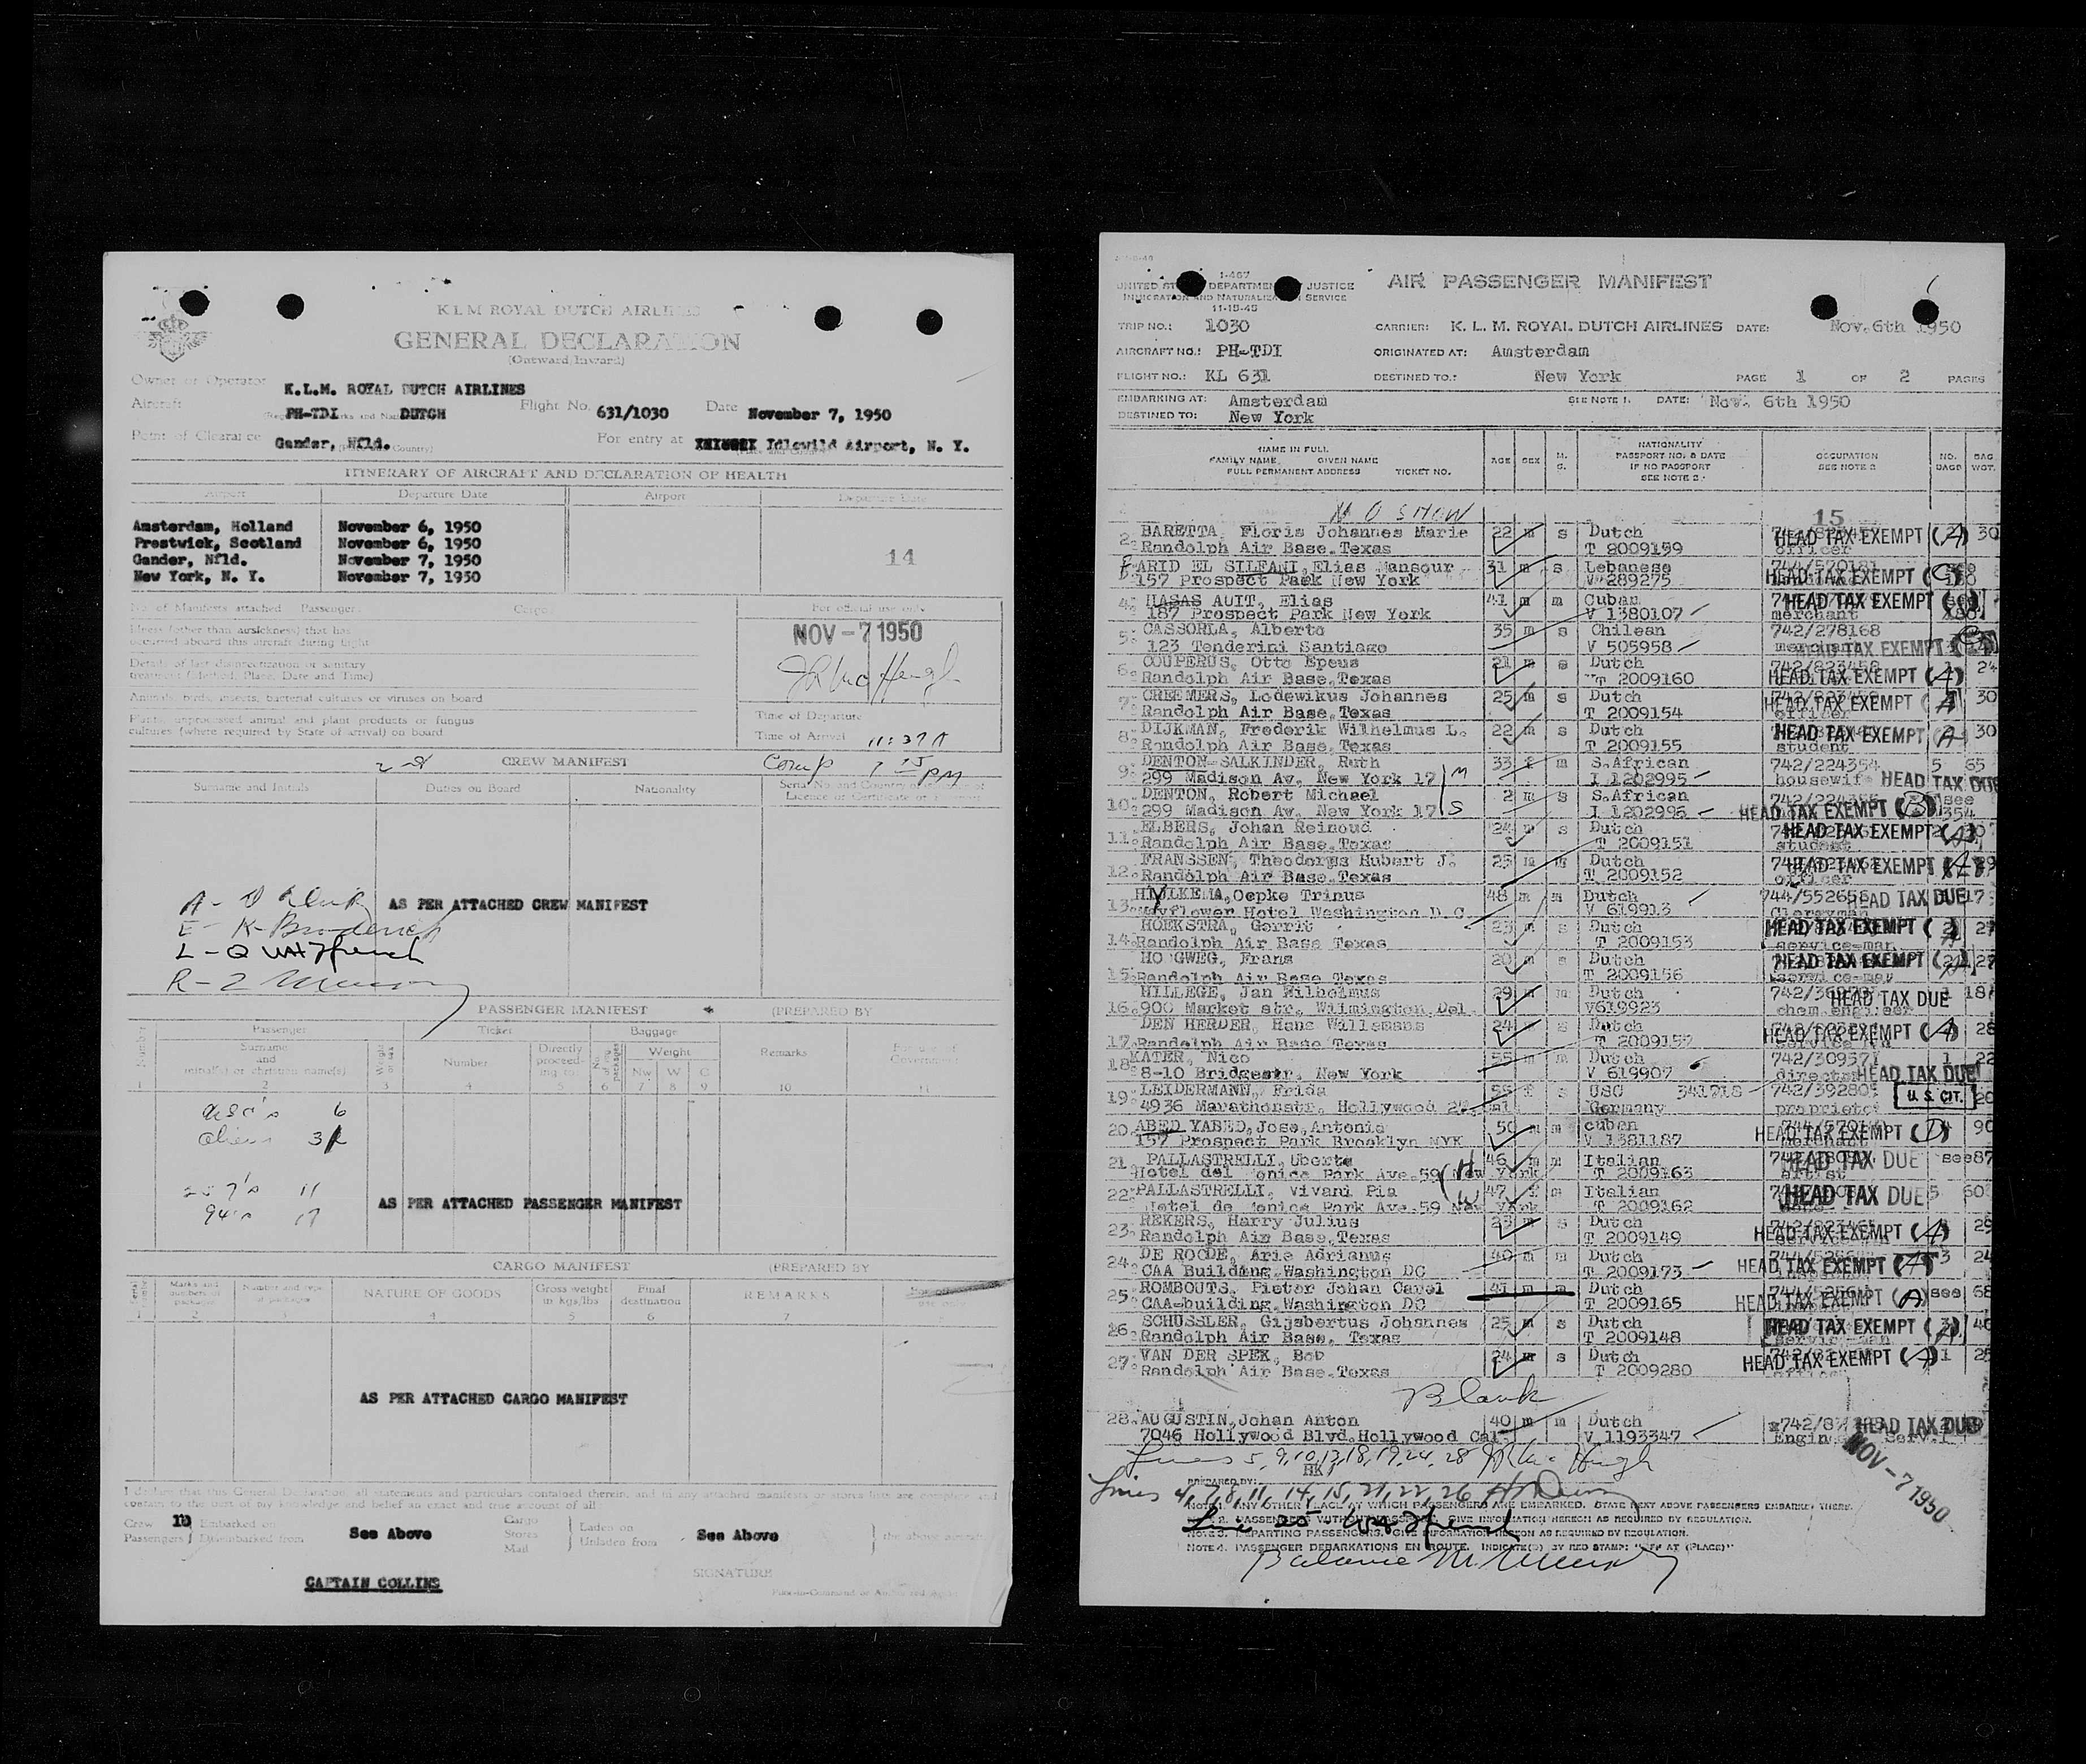 K.L.M ROYAL DUTCH AIRLINES
GENERAL DECLARATION
(Outward/Inward)
Owner or Operator K.L.M. ROYAL DUTCH AIRLINES
Aircraft PH-TDI DUTCH Flight No. 631/1030 Date November 7, 1950
Point of Clearance Gander, Nfld. For entry at Idlewild Airport, N. Y.
ITINERARY OF AIRCRAFT AND DECLARATION OF HEALTH
Airport Departure Date Airport Departure Date
Amsterdam, Holland November 6, 1950
Prestwick, Scotland November 6, 1950
Gander, Nfld. November 7, 1950
New York, N. Y. November 7, 1950
14
No. of Manifests attached Passenger: Cargo:
For official use only
Illness (other than airsickness) that has
occurred aboard this aircraft during flight
NOV - 7 1950
Details of last disinsectization or sanitary
treatment (Method, Place, Date and Time)
Animals, birds, insects, bacterial cultures or viruses on board
Plants, unprocessed animal and plant products or fungus
cultures (where required by State of arrival) on board
Time of Departure
Time of Arrival 11:37A
CREW MANIFEST
Surname and Initials Duties on Board Nationality
AS PER ATTACHED CREW MANIFEST
PASSENGER MANIFEST (PREPARED BY
Passenger Ticket Baggage
Surname and initial(s) or christian name(s) Number Directly proceeding to: Weight Remarks
Nw W C
1 2 3 4 5 6 7 8 9 10 11
usc's 6
aliens
257's 11
94's 17
AS PER ATTACHED PASSENGER MANIFEST
CARGO MANIFEST (PREPARED BY
Marks and numbers of packages Number and type of packages NATURE OF GOODS Gross weight in kgs/lbs Final destination REMARKS
1 2 3 4 5 6 7
AS PER ATTACHED CARGO MANIFEST
I declare that this General Declaration, all statements and particulars contained therein, and in any attached manifests or stores lists are complete and
correct to the best of my knowledge and belief an exact and true account of all
Crew 10 Embarked on Cargo Laden on
Passengers Disembarked from See Above Stores Unladen from See Above the above aircraft
Mail
SIGNATURE
CAPTAIN COLLINS
1-467
UNITED STATES DEPARTMENT OF JUSTICE
IMMIGRATION AND NATURALIZATION SERVICE
11-15-45
AIR PASSENGER MANIFEST
TRIP NO.: 1030 CARRIER: K. L. M. ROYAL DUTCH AIRLINES DATE: Nov. 6th 1950
AIRCRAFT NO.: PH-TDI ORIGINATED AT: Amsterdam
FLIGHT NO.: KL 631 DESTINED TO.: New York PAGE 1 OF 2 PAGES
EMBARKING AT: Amsterdam SEE NOTE 1. DATE: Nov. 6th 1950
DESTINED TO: New York
NAME IN FULL
FAMILY NAME, GIVEN NAME
FULL PERMANENT ADDRESS TICKET NO.
AGE SEX M. S.
NATIONALITY
PASSPORT NO. & DATE
IF NO PASSPORT
SEE NOTE 2.
OCCUPATION
SEE NOTE 3
NO. BAGS BAG WGT.
NO SHOW
15
2. BARETTA, Floris Johannes Marie 22 m s Dutch HEAD TAX EXEMPT (A) 30
Randolph Air Base.Texas T 2009159 officer
FARID EL SILFANI, Elias Mansour 31 m s Lebanese
157 Prospect Park New York V 289275 HEAD TAX EXEMPT (C)
4. HASAS AUIT, Elias 41 m m Cuban HEAD TAX EXEMPT
187 Prospect Park New York V 1380107 merchant
5. CASSORLA, Alberto 35 m s Chilean 742/278168
123 Tenderini Santiago V 505958 HEAD TAX EXEMPT
6. COUPERUS, Otto Epeus 21 m s Dutch 24
Randolph Air Base.Texas T 2009160 HEAD TAX EXEMPT (A)
7. CREEMERS, Lodewikus Johannes 25 m s Dutch HEAD TAX EXEMPT (A) 30
Randolph Air Base.Texas T 2009154 officer
8. DIJKMAN, Frederik Wilhelmus L. 22 m s Dutch HEAD TAX EXEMPT (A) 30
Randolph Air Base.Texas T 2009155 student
9. DENTON-SALKINDER, Ruth 33 f m S.African 742/224354 5 65
299 Madison Av. New York 17 M I 1202995 housewife HEAD TAX DUE
10. DENTON, Robert Michael 2 m s S.African see
299 Madison Av. New York 17 S I 1202996 HEAD TAX EXEMPT (B) 354
11. ELBERS, Johan Reinoud 24 m s Dutch HEAD TAX EXEMPT (A)
Randolph Air Base.Texas T 2009151 student
12. FRANSSEN, Theodorus Hubert J. 25 m m Dutch HEAD TAX EXEMPT (A)
Randolph Air Base.Texas T 2009152 officer
13. HYLKEMA,Oepke Trinus 48 m m Dutch 744/552656 HEAD TAX DUE 17
Mayflower Hotel Washington D.C. V 619913 Clergyman
14. HOEKSTRA, Gerrit 25 m s Dutch HEAD TAX EXEMPT 27
Randolph Air Base Texas T 2009153 service-man
15. HO GWEG, Frans 20 m s Dutch HEAD TAX EXEMPT (A) 27
Randolph Air Base Texas T 2009156 service-man
16. HILLEGE, Jan Wilhelmus 29 m m Dutch HEAD TAX DUE 18
900 Market str. Wilmington Del. V619923 chem.engineer
17. DEN HERDER, Hans Willemans 24 m s Dutch HEAD TAX EXEMPT (A) 28
Randolph Air Base Texas T 2009157
18. KATER, Nico 55 m m Dutch 742/309571 1 22
8-10 Bridgestr. New York V 619907 director HEAD TAX DUE
19. LEIDERMANN, Frida 55 f s USC 341718 742/392805 U.S. CIT. 20
4936 Marathonstr. Hollywood Cal. Germany proprietor
20. ABED YABED,Jose Antonio 50 m m cuban 90
157 Prospect Park Brooklyn NYK V 1381187 HEAD TAX EXEMPT (D) merchant
21. PALLASTRELLI, Uberto H 46 m m Italian HEAD TAX DUE see 87
Hotel del onico Park Ave.59 New York T 2009163 artist
22. PALLASTRELLI, Vivani Pia W 47 f m Italian HEAD TAX DUE 5 60
Hotel de onico Park Ave.59 New York T 2009162
23. REKERS, Harry Julius 25 m s Dutch 29
Randolph Air Base.Texas T 2009149 HEAD TAX EXEMPT (A)
24. DE ROODE, Arie Adrianus 40 m m Dutch 3 24
CAA Building.Washington DC T 2009173 HEAD TAX EXEMPT (A)
25. ROMBOUTS, Pieter Johan Carel 41 m m Dutch see 68
CAA-building.Washington DC T 2009165 HEAD TAX EXEMPT (A)
26. SCHUSSLER, Gijsbertus Johannes 25 m s Dutch HEAD TAX EXEMPT 40
Randolph Air Base. Texas T 2009148 service-man
27. VAN DER SPEK, Bob 24 m s Dutch HEAD TAX EXEMPT (A) 1 25
Randolph Air Base.Texas T 2009280
Blank
28. AUGUSTIN,Johan Anton 40 m m Dutch HEAD TAX DUE
7046 Hollywood Blvd.Hollywood Cal. V 1193347
Lines 5, 9,10,13,18,19,24, 28
NOV - 7 1950
PREPARED BY: HK
Lines 4, 7,8, 11, 14, 15, 21, 22, 26
NOTE 1. ANY OTHER PLACE AT WHICH PASSENGERS ARE EMBARKED. STATE NEXT ABOVE PASSENGERS EMBARKED THERE.
NOTE 2. PASSENGERS WITHOUT PASSPORT. GIVE INFORMATION HEREON AS REQUIRED BY REGULATION.
Line 25
NOTE 3. DEPARTING PASSENGERS. GIVE INFORMATION HEREON AS REQUIRED BY REGULATION.
NOTE 4. PASSENGER DEBARKATIONS EN ROUTE. INDICATE(S) BY RED STAMP: "OFF AT (PLACE)"
Balance